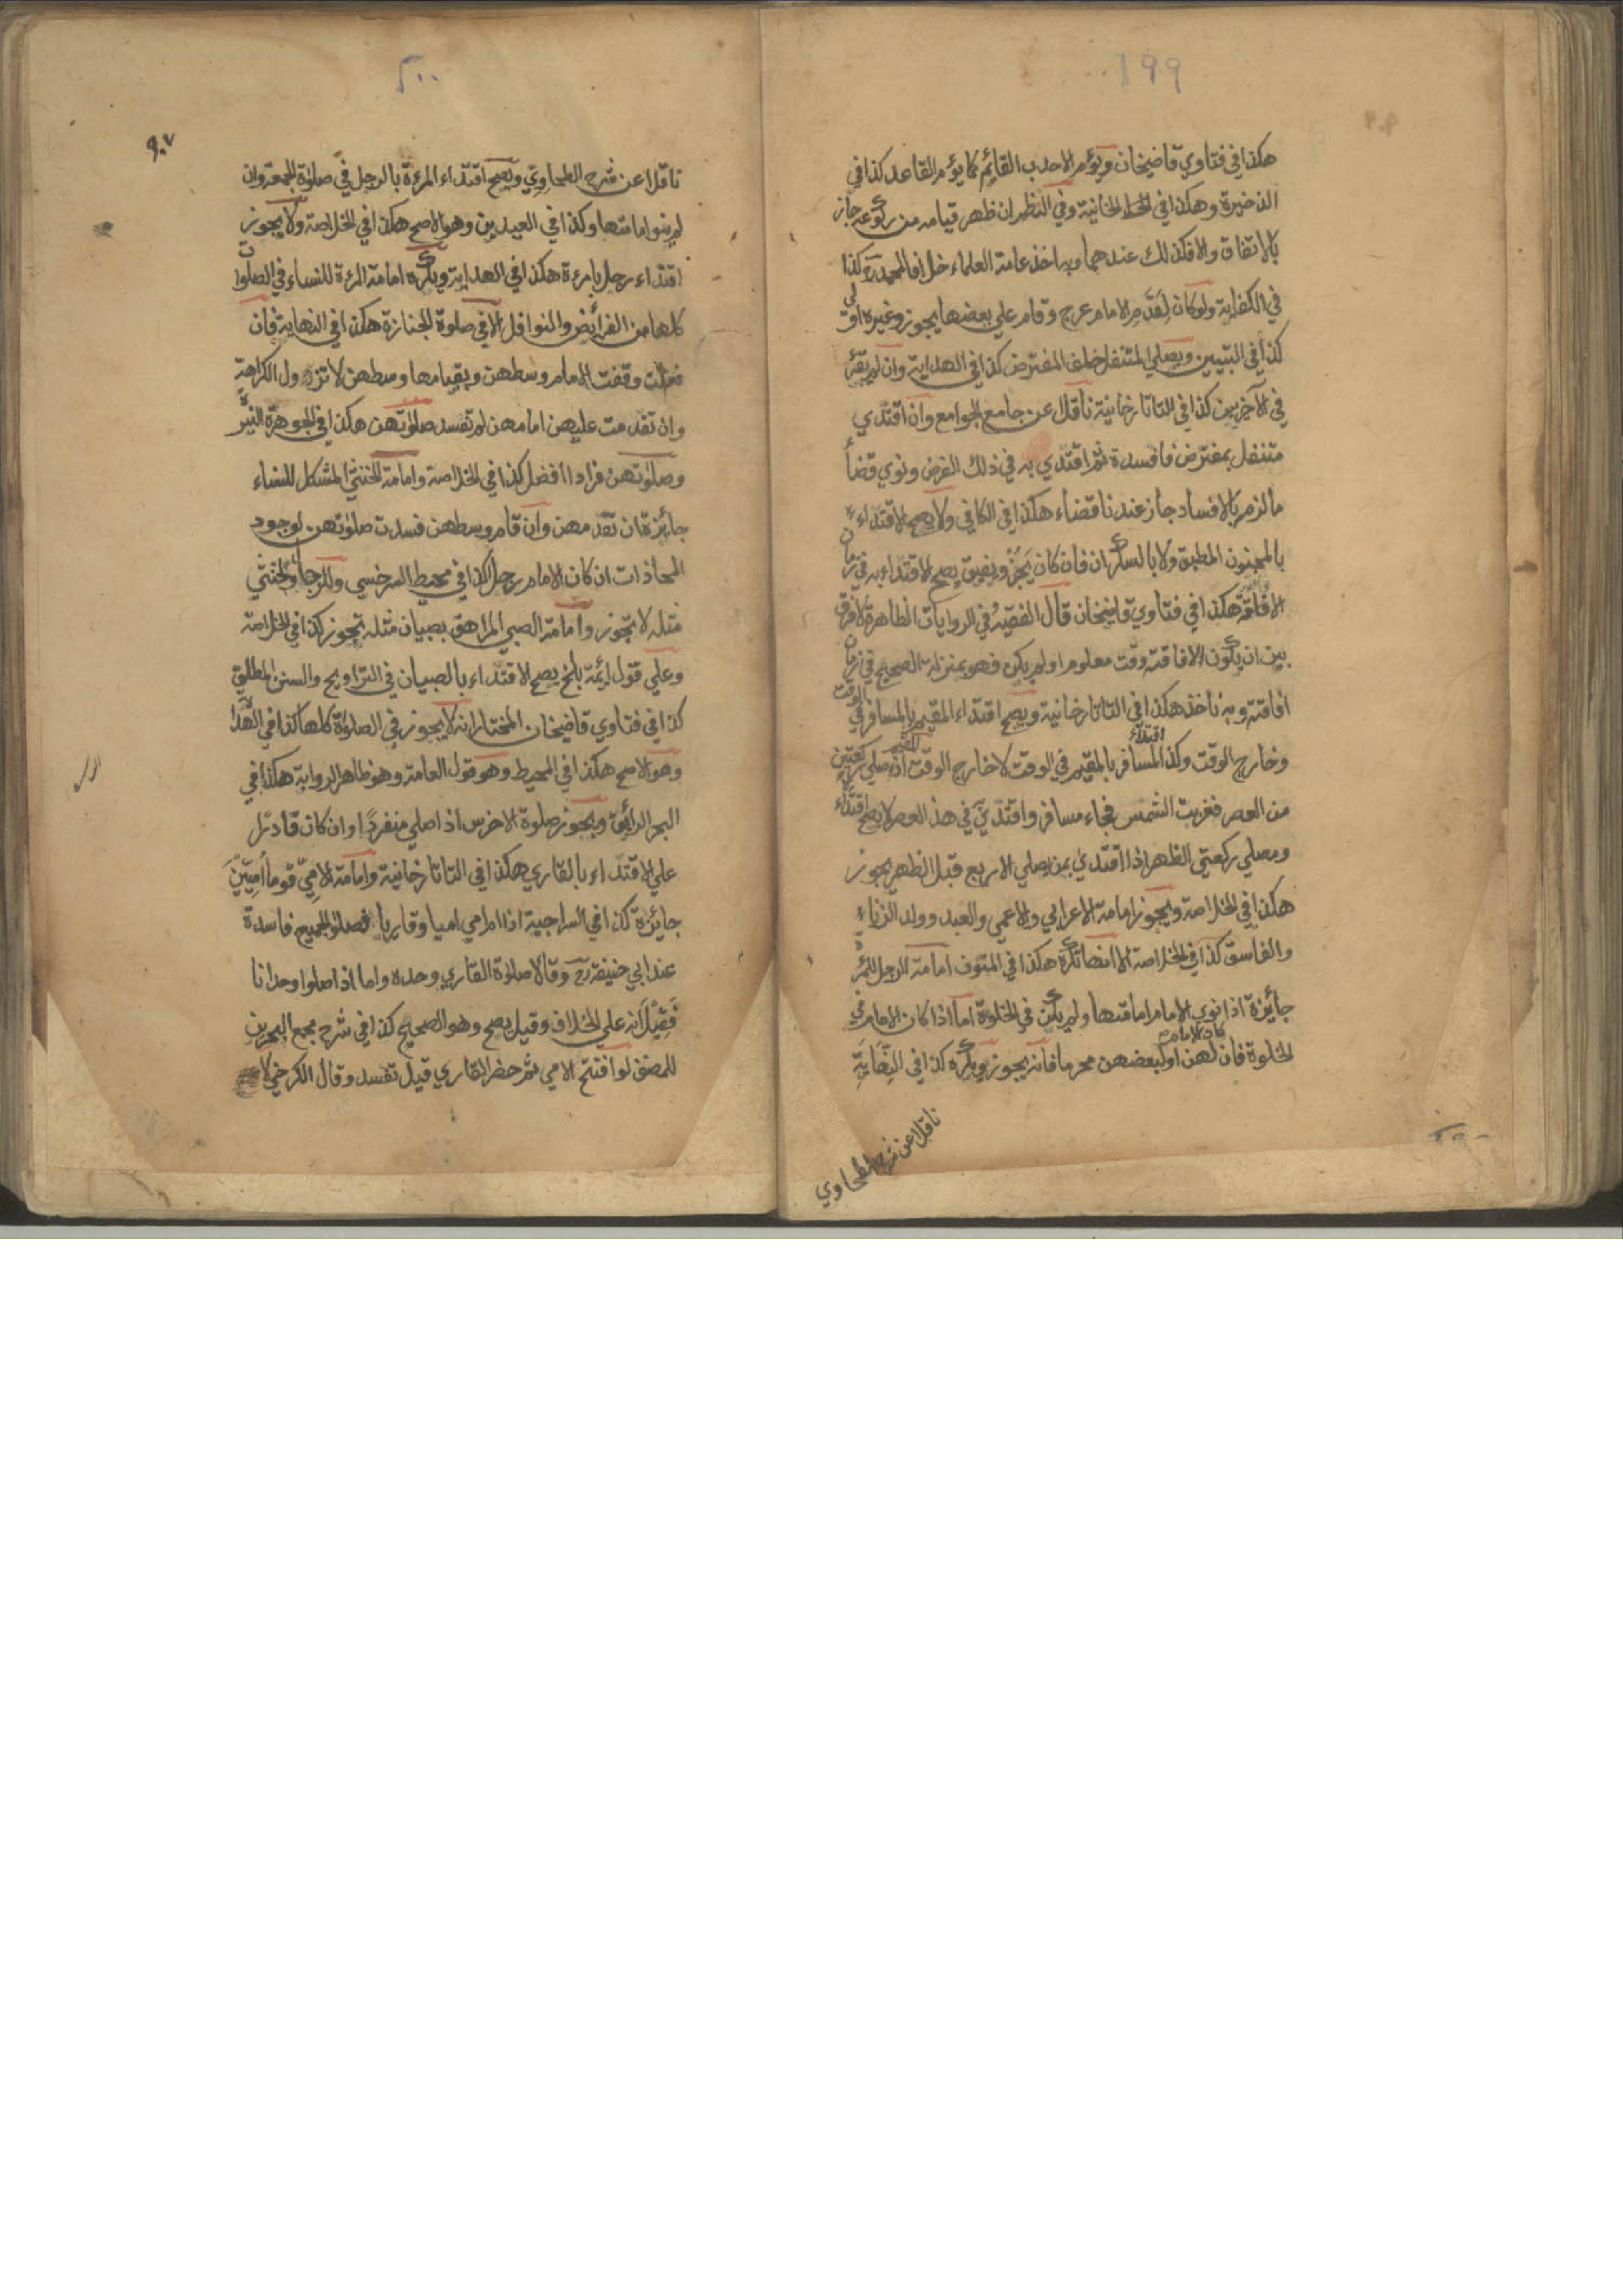 ١٩٩
هكذا في فتاوي قاضيخان ويؤم الاحدب القائم كما يؤم القاعد كذا في
الذخيرة وهكذا في الخانية وفي النظم ان ظهر قيامه من ركوعه جاز
بالاتفاق والا فكذلك عندهما وبه اخذ عامة العلماء خلافا لمحمد رح كذا
في الكفاية ولو كان لقدم الامام عرج وقام علي بعضها يجوز وغيره اولي
كذا في التبيين ويصلي المتنفل خلف المفترض كذا في الهداية وان لم يقرء
في الآخريين كذا في التاتارخانية ناقلا عن جامع الجوامع وان اقتدي
متنفل بمفترض فافسدة ثم اقتدي به في ذلك الفرض ونوي قضأ
ما لزم بالافساد جاز عندنا قضاء هكذا في الكافي ولا يصح الاقتداء
بالمجنون المطبق ولا بالسكران فان كان يجن ويفيق يصح الاقتداء به في زمان
الافاقة هكذا في فتاوي قاضيخان قال الفقيه في الروايات الظاهرة لا فرق
بين ان يكون الافاقته وقت معلوم اولم يكن فهو بمنزلة الصحيح في زمان
افاقته وبه ناخذ هكذا في التاتارخانية ويصح اقتداء المقيم بالمسافر في الوقت
وخارج الوقت وكذا اقتداء المسافر بالمقيم في الوقت لا خارج الوقت اذا صلي المقيم ركعتين
من العصر فغربت الشمس فجاء مسافر واقتدي في هذ العصر لا يصح اقتداء
ومصلي ركعتي الظهر اذا اقتدي بمن يصلي الاربع قبل الظهر يجوز
هكذا في الخلاصة ويجوز امامة الاعرابي والاعمي والعبد وولد الزناء
والفاسق كذا في الخلاصة الا انها تكره هكذا في المتون امامة الرجل للمرءة
جائزة اذا نوي الامام امامتها ولم يكن في الخلوة اما اذا كان الامام في
الخلوة فان كان الامام لهن او لبعضهن محرما فانه يجوز ويكره كذا في النهاية
ناقلا عن شرح الطحاوي
٢٠٠
ناقلا عن شرح الطحاوي ويصح اقتداء المرءة بالرجل في صلوة الجمعة وان
لم ينو امامتها وكذا في العيدين وهو الاصح هكذا في الخلاصة ولا يجوز
اقتداء رجل بامرءة هكذا في الهداية ويكره امامة المرءة للنساء في الصلوات
كلها من الفرائض والنوافل الا في صلوة الجنازة هكذا في النهاية فان
فعلت وقفت الامام وسطهن وبقيامها وسطهن لا تزول الكراهة
وان تقدمت عليهن امامهن لم تفسد صلوتهن هكذا في الجوهرة النيرة
وصلوتهن فرادا افضل كذا في الخلاصة وامامة الخنثي المشكل للنساء
جائزة ان تقدمهن وان قام وسطهن فسدت صلوتهن لوجود
المحاذات ان كان الامام رجلا كذا في محيط السرخسي وللرجال والخنثي
مثله لا تجوز وامامة الصبي المراهق بصبيان مثله تجوز كذا في الخلاصة
وعلي قول ائمة بلخ يصح الاقتداء بالصبيان في التراويح والسنن المطلق
كذا في فتاوي قاضيخان المختار انه لا يجوز في الصلوة كلها كذا في الهداية
وهو الاصح هكذا في المحيط وهو قول العامة وهو ظاهر الرواية هكذا في
البحر الرائق ويجوز صلوة الاخرس اذ اصلي منفردا وان كان قادرا
علي الاقتداء بالقاري هكذا في التاتارخانية وامامة الامي قوما اميين
جايزة كذا في السراجية اذا ام امي اميا وقاريا فصلوة الجميع فاسدة
عند ابي حنيفة رح وقالا صلوة القاري وحده واما اذ اصلوا وحدانا
فقيل انه علي الخلاف وقيل يصح وهو الصحيح كذا في شرح مجمع البحرين
للمصنف لو افتتح الامي ثم حضر القاري قيل تفسد وقال الكرخي لا